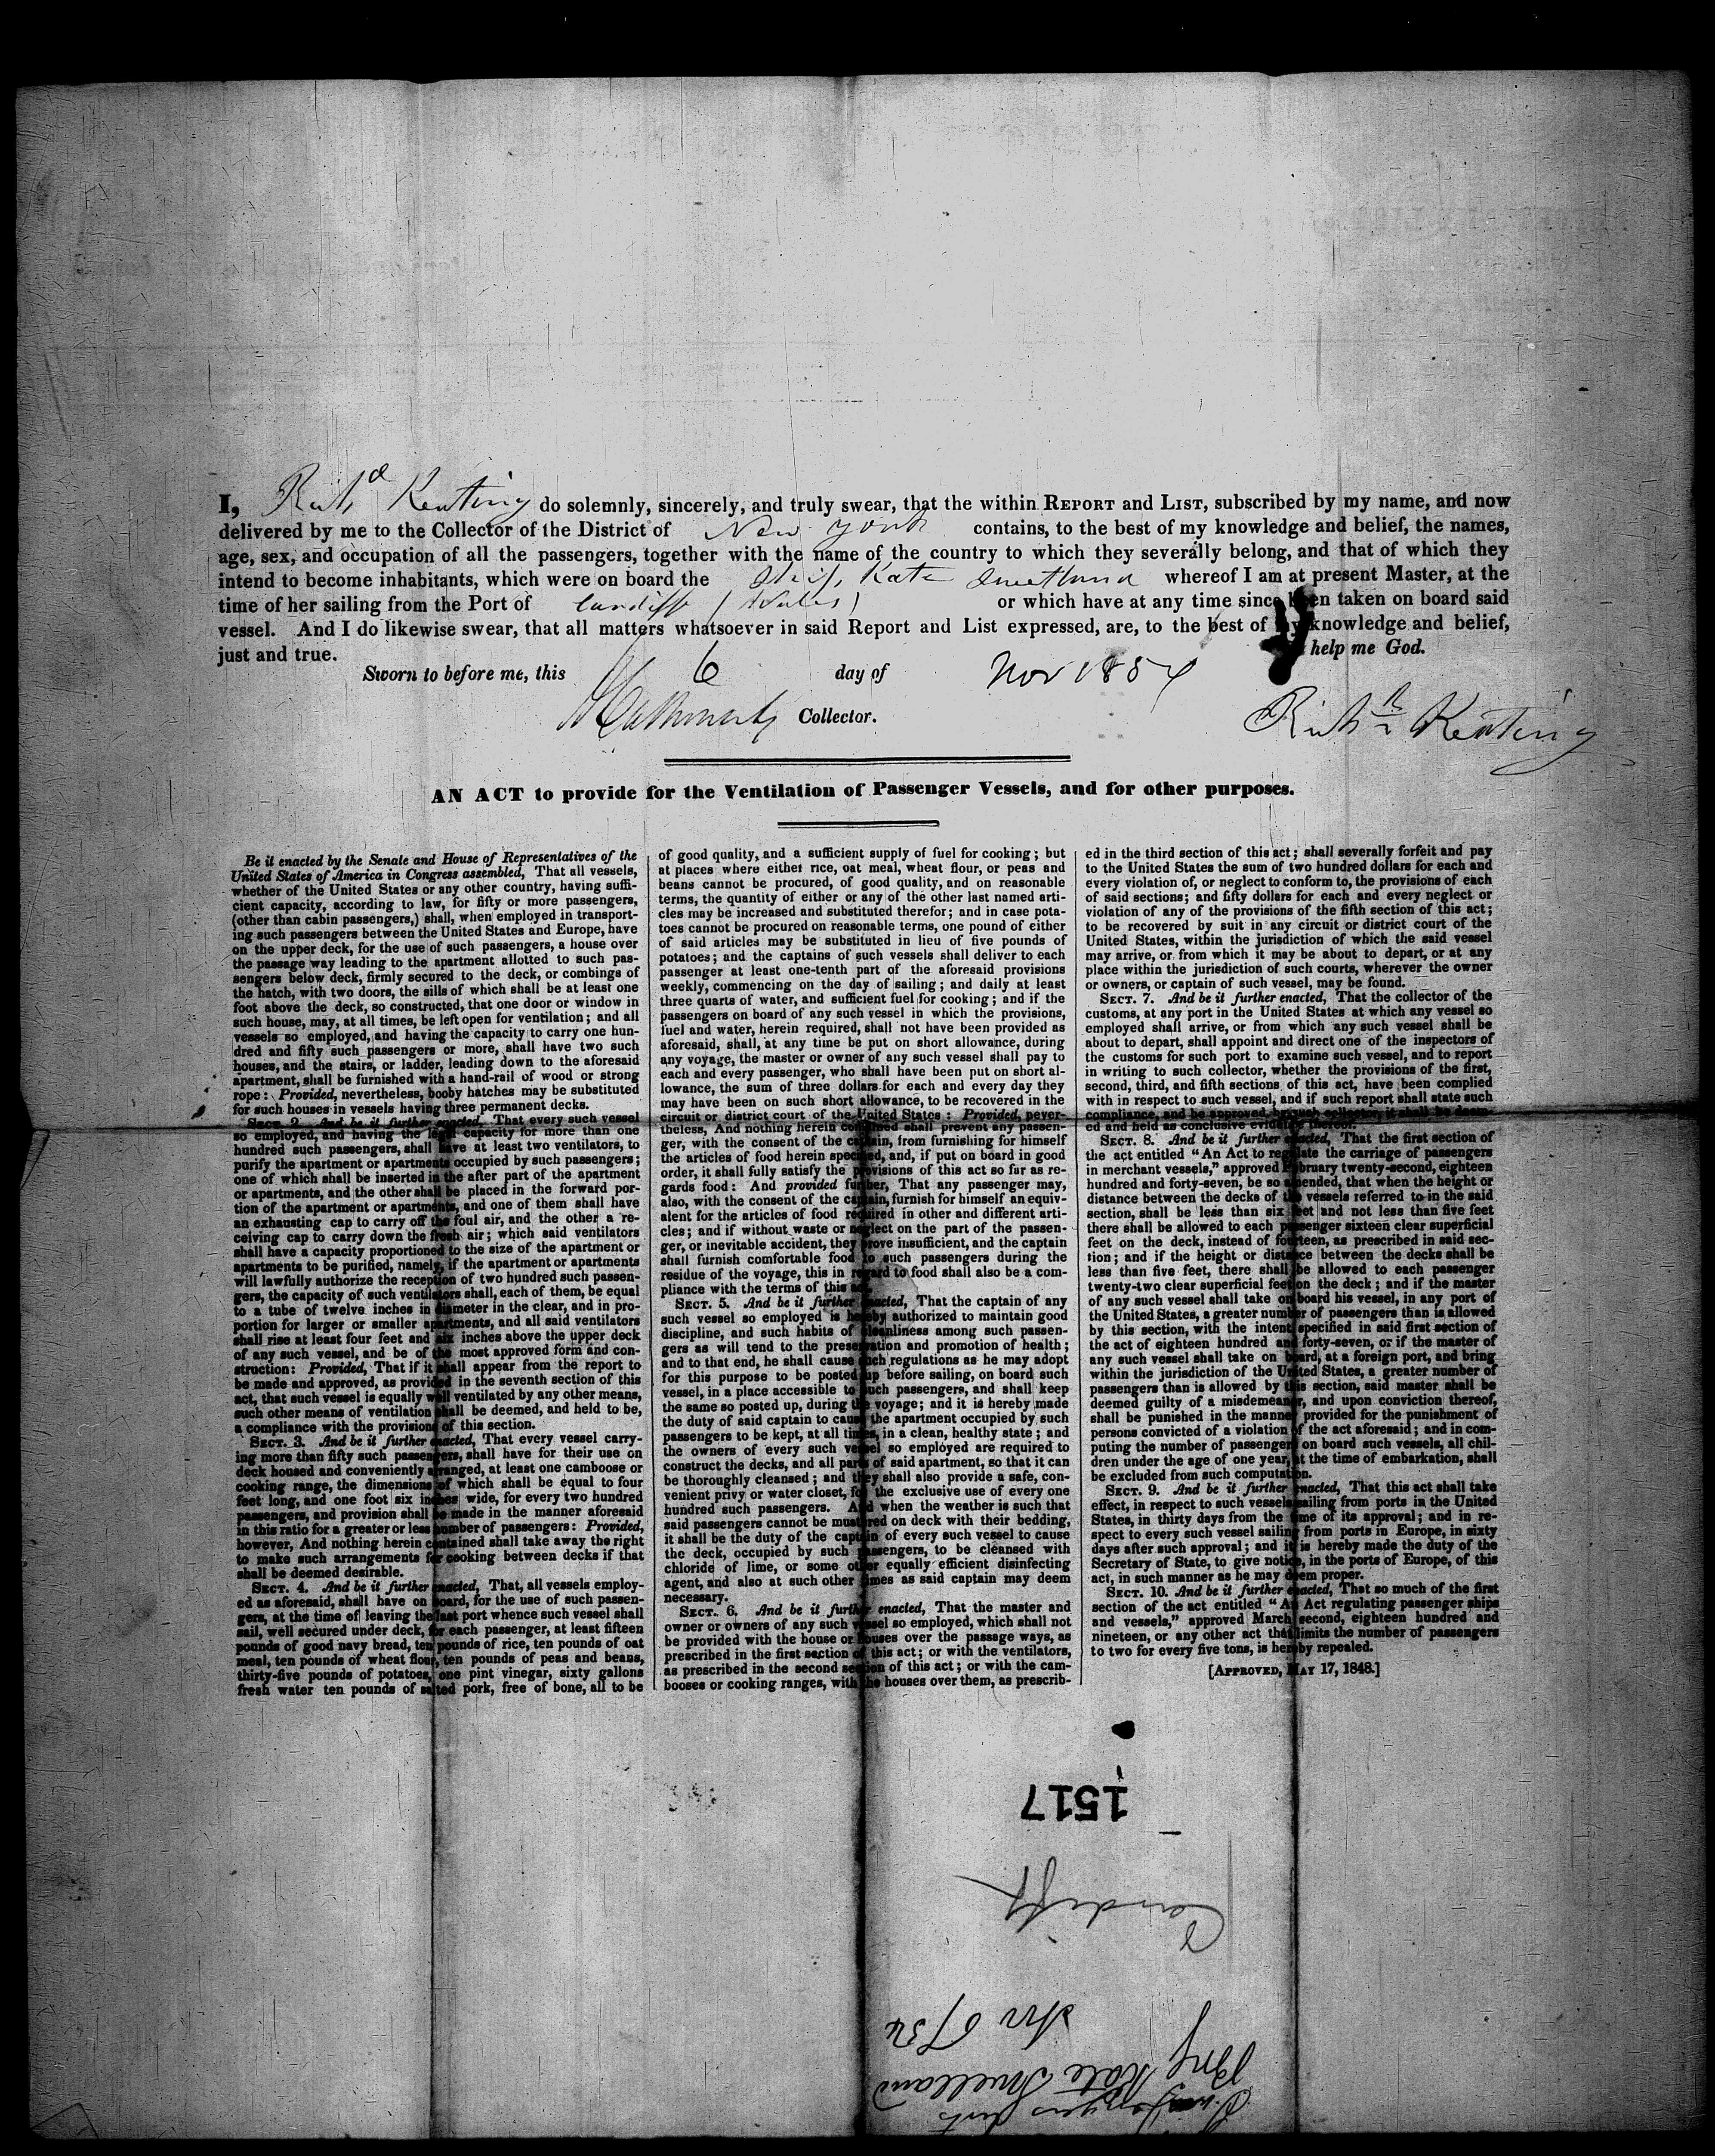 I, Richd Keating do solemnly, sincerely, and truly swear, that the within REPORT and LIST, subscribed by my name, and now
delivered by me to the Collector of the District of New York contains, to the best of my knowledge and belief, the names,
age, sex, and occupation of all the passengers, together with the name of the country to which they severally belong, and that of which they
intend to become inhabitants, which were on board the Ship Kate Sweetland whereof I am at present Master, at the
time of her sailing from the Port of Cardiff (Wales) or which have at any time since been taken on board said
vessel. And I do likewise swear, that all matters whatsoever in said Report and List expressed, are, to the best of my knowledge and belief,
just and true. help me God.
Sworn to before me, this 6 day of Nov 1854
Collector.
Richd Keating
AN ACT to provide for the Ventilation of Passenger Vessels, and for other purposes.
Be it enacted by the Senate and House of Representatives of the
United States of America in Congress assembled, That all vessels,
whether of the United States or any other country, having suffi-
cient capacity, according to law, for fifty or more passengers,
(other than cabin passengers,) shall, when employed in transport-
ing such passengers between the United States and Europe, have
on the upper deck, for the use of such passengers, a house over
the passage way leading to the apartment allotted to such pas-
sengers below deck, firmly secured to the deck, or combings of
the hatch, with two doors, the sills of which shall be at least one
foot above the deck, so constructed, that one door or window in
such house, may, at all times, be left open for ventilation; and all
vessels so employed, and having the capacity to carry one hun-
dred and fifty such passengers or more, shall have two such
houses, and the stairs, or ladder, leading down to the aforesaid
apartment, shall be furnished with a hand-rail of wood or strong
rope: Provided, nevertheless, booby hatches may be substituted
for such houses in vessels having three permanent decks.
SECT. 2. And be it further enacted, That every such vessel
so employed, and having the legal capacity for more than one
hundred such passengers, shall have at least two ventilators, to
purify the apartment or apartments occupied by such passengers;
one of which shall be inserted in the after part of the apartment
or apartments, and the other shall be placed in the forward por-
tion of the apartment or apartments, and one of them shall have
an exhausting cap to carry off the foul air, and the other a re-
ceiving cap to carry down the fresh air; which said ventilators
shall have a capacity proportioned to the size of the apartment or
apartments to be purified, namely, if the apartment or apartments
will lawfully authorize the reception of two hundred such passen-
gers, the capacity of such ventilators shall, each of them, be equal
to a tube of twelve inches in diameter in the clear, and in pro-
portion for larger or smaller apartments, and all said ventilators
shall rise at least four feet and six inches above the upper deck
of any such vessel, and be of the most approved form and con-
struction: Provided, That if it shall appear from the report to
be made and approved, as provided in the seventh section of this
act, that such vessel is equally well ventilated by any other means,
such other means of ventilation shall be deemed, and held to be,
a compliance with the provisions of this section.
SECT. 3. And be it further enacted, That every vessel carry-
ing more than fifty such passengers, shall have for their use on
deck housed and conveniently arranged, at least one camboose or
cooking range, the dimensions of which shall be equal to four
feet long, and one foot six inches wide, for every two hundred
passengers, and provision shall be made in the manner aforesaid
in this ratio for a greater or less number of passengers: Provided,
however, And nothing herein contained shall take away the right
to make such arrangements for cooking between decks if that
shall be deemed desirable.
SECT. 4. And be it further enacted, That, all vessels employ-
ed as aforesaid, shall have on board, for the use of such passen-
gers, at the time of leaving the last port whence such vessel shall
sail, well secured under deck, for each passenger, at least fifteen
pounds of good navy bread, ten pounds of rice, ten pounds of oat
meal, ten pounds of wheat flour, ten pounds of peas and beans,
thirty-five pounds of potatoes, one pint vinegar, sixty gallons
fresh water ten pounds of salted pork, free of bone, all to be
of good quality, and a sufficient supply of fuel for cooking; but
at places where either rice, oat meal, wheat flour, or peas and
beans cannot be procured, of good quality, and on reasonable
terms, the quantity of either or any of the other last named arti-
cles may be increased and substituted therefor; and in case pota-
toes cannot be procured on reasonable terms, one pound of either
of said articles may be substituted in lieu of five pounds of
potatoes; and the captains of such vessels shall deliver to each
passenger at least one-tenth part of the aforesaid provisions
weekly, commencing on the day of sailing; and daily at least
three quarts of water, and sufficient fuel for cooking; and if the
passengers on board of any such vessel in which the provisions,
fuel and water, herein required, shall not have been provided as
aforesaid, shall, at any time be put on short allowance, during
any voyage, the master or owner of any such vessel shall pay to
each and every passenger, who shall have been put on short al-
lowance, the sum of three dollars for each and every day they
may have been on such short allowance, to be recovered in the
circuit or district court of the United States: Provided, never-
theless, And nothing herein contained shall prevent any passen-
ger, with the consent of the captain, from furnishing for himself
the articles of food herein specified, and, if put on board in good
order, it shall fully satisfy the provisions of this act so far as re-
gards food: And provided further, That any passenger may,
also, with the consent of the captain, furnish for himself an equiv-
alent for the articles of food required in other and different arti-
cles; and if without waste or neglect on the part of the passen-
ger, or inevitable accident, they prove insufficient, and the captain
shall furnish comfortable food to such passengers during the
residue of the voyage, this in regard to food shall also be a com-
pliance with the terms of this act.
SECT. 5. And be it further enacted, That the captain of any
such vessel so employed is hereby authorized to maintain good
discipline, and such habits of cleanliness among such passen-
gers as will tend to the preservation and promotion of health;
and to that end, he shall cause such regulations as he may adopt
for this purpose to be posted up before sailing, on board such
vessel, in a place accessible to such passengers, and shall keep
the same so posted up, during the voyage; and it is hereby made
the duty of said captain to cause the apartment occupied by such
passengers to be kept, at all times, in a clean, healthy state; and
the owners of every such vessel so employed are required to
construct the decks, and all parts of said apartment, so that it can
be thoroughly cleansed; and they shall also provide a safe, con-
venient privy or water closet, for the exclusive use of every one
hundred such passengers. And when the weather is such that
said passengers cannot be mustered on deck with their bedding,
it shall be the duty of the captain of every such vessel to cause
the deck, occupied by such passengers, to be cleansed with
chloride of lime, or some other equally efficient disinfecting
agent, and also at such other times as said captain may deem
necessary.
SECT. 6. And be it further enacted, That the master and
owner or owners of any such vessel so employed, which shall not
be provided with the house or houses over the passage ways, as
prescribed in the first section of this act; or with the ventilators,
as prescribed in the second section of this act; or with the cam-
booses or cooking ranges, with the houses over them, as prescrib-
ed in the third section of this act; shall severally forfeit and pay
to the United States the sum of two hundred dollars for each and
every violation of, or neglect to conform to, the provisions of each
of said sections; and fifty dollars for each and every neglect or
violation of any of the provisions of the fifth section of this act;
to be recovered by suit in any circuit or district court of the
United States, within the jurisdiction of which the said vessel
may arrive, or from which it may be about to depart, or at any
place within the jurisdiction of such courts, wherever the owner
or owners, or captain of such vessel, may be found.
SECT. 7. And be it further enacted, That the collector of the
customs, at any port in the United States at which any vessel so
employed shall arrive, or from which any such vessel shall be
about to depart, shall appoint and direct one of the inspectors of
the customs for such port to examine such vessel, and to report
in writing to such collector, whether the provisions of the first,
second, third, and fifth sections of this act, have been complied
with in respect to such vessel, and if such report shall state such
compliance, and be approved by such collector, it shall be deem-
ed and held as conclusive evidence thereof.
SECT. 8. And be it further enacted, That the first section of
the act entitled "An Act to regulate the carriage of passengers
in merchant vessels," approved February twenty-second, eighteen
hundred and forty-seven, be so amended, that when the height or
distance between the decks of the vessels referred to in the said
section, shall be less than six feet and not less than five feet
there shall be allowed to each passenger sixteen clear superficial
feet on the deck, instead of fourteen, as prescribed in said sec-
tion; and if the height or distance between the decks shall be
less than five feet, there shall be allowed to each passenger
twenty-two clear superficial feet on the deck; and if the master
of any such vessel shall take on board his vessel, in any port of
the United States, a greater number of passengers than is allowed
by this section, with the intent specified in said first section of
the act of eighteen hundred and forty-seven, or if the master of
any such vessel shall take on board, at a foreign port, and bring
within the jurisdiction of the United States, a greater number of
passengers than is allowed by this section, said master shall be
deemed guilty of a misdemeanor, and upon conviction thereof,
shall be punished in the manner provided for the punishment of
persons convicted of a violation of the act aforesaid; and in com-
puting the number of passengers on board such vessels, all chil-
dren under the age of one year, at the time of embarkation, shall
be excluded from such computation.
SECT. 9. And be it further enacted, That this act shall take
effect, in respect to such vessels sailing from ports in the United
States, in thirty days from the time of its approval; and in re-
spect to every such vessel sailing from ports in Europe, in sixty
days after such approval; and it is hereby made the duty of the
Secretary of State, to give notice, in the ports of Europe, of this
act, in such manner as he may deem proper.
SECT. 10. And be it further enacted, That so much of the first
section of the act entitled "An Act regulating passenger ships
and vessels," approved March second, eighteen hundred and
nineteen, or any other act that limits the number of passengers
to two for every five tons, is hereby repealed.
[APPROVED, MAY 17, 1848.]
Kate Sweetland
Nov 6/54
Cardiff
1517